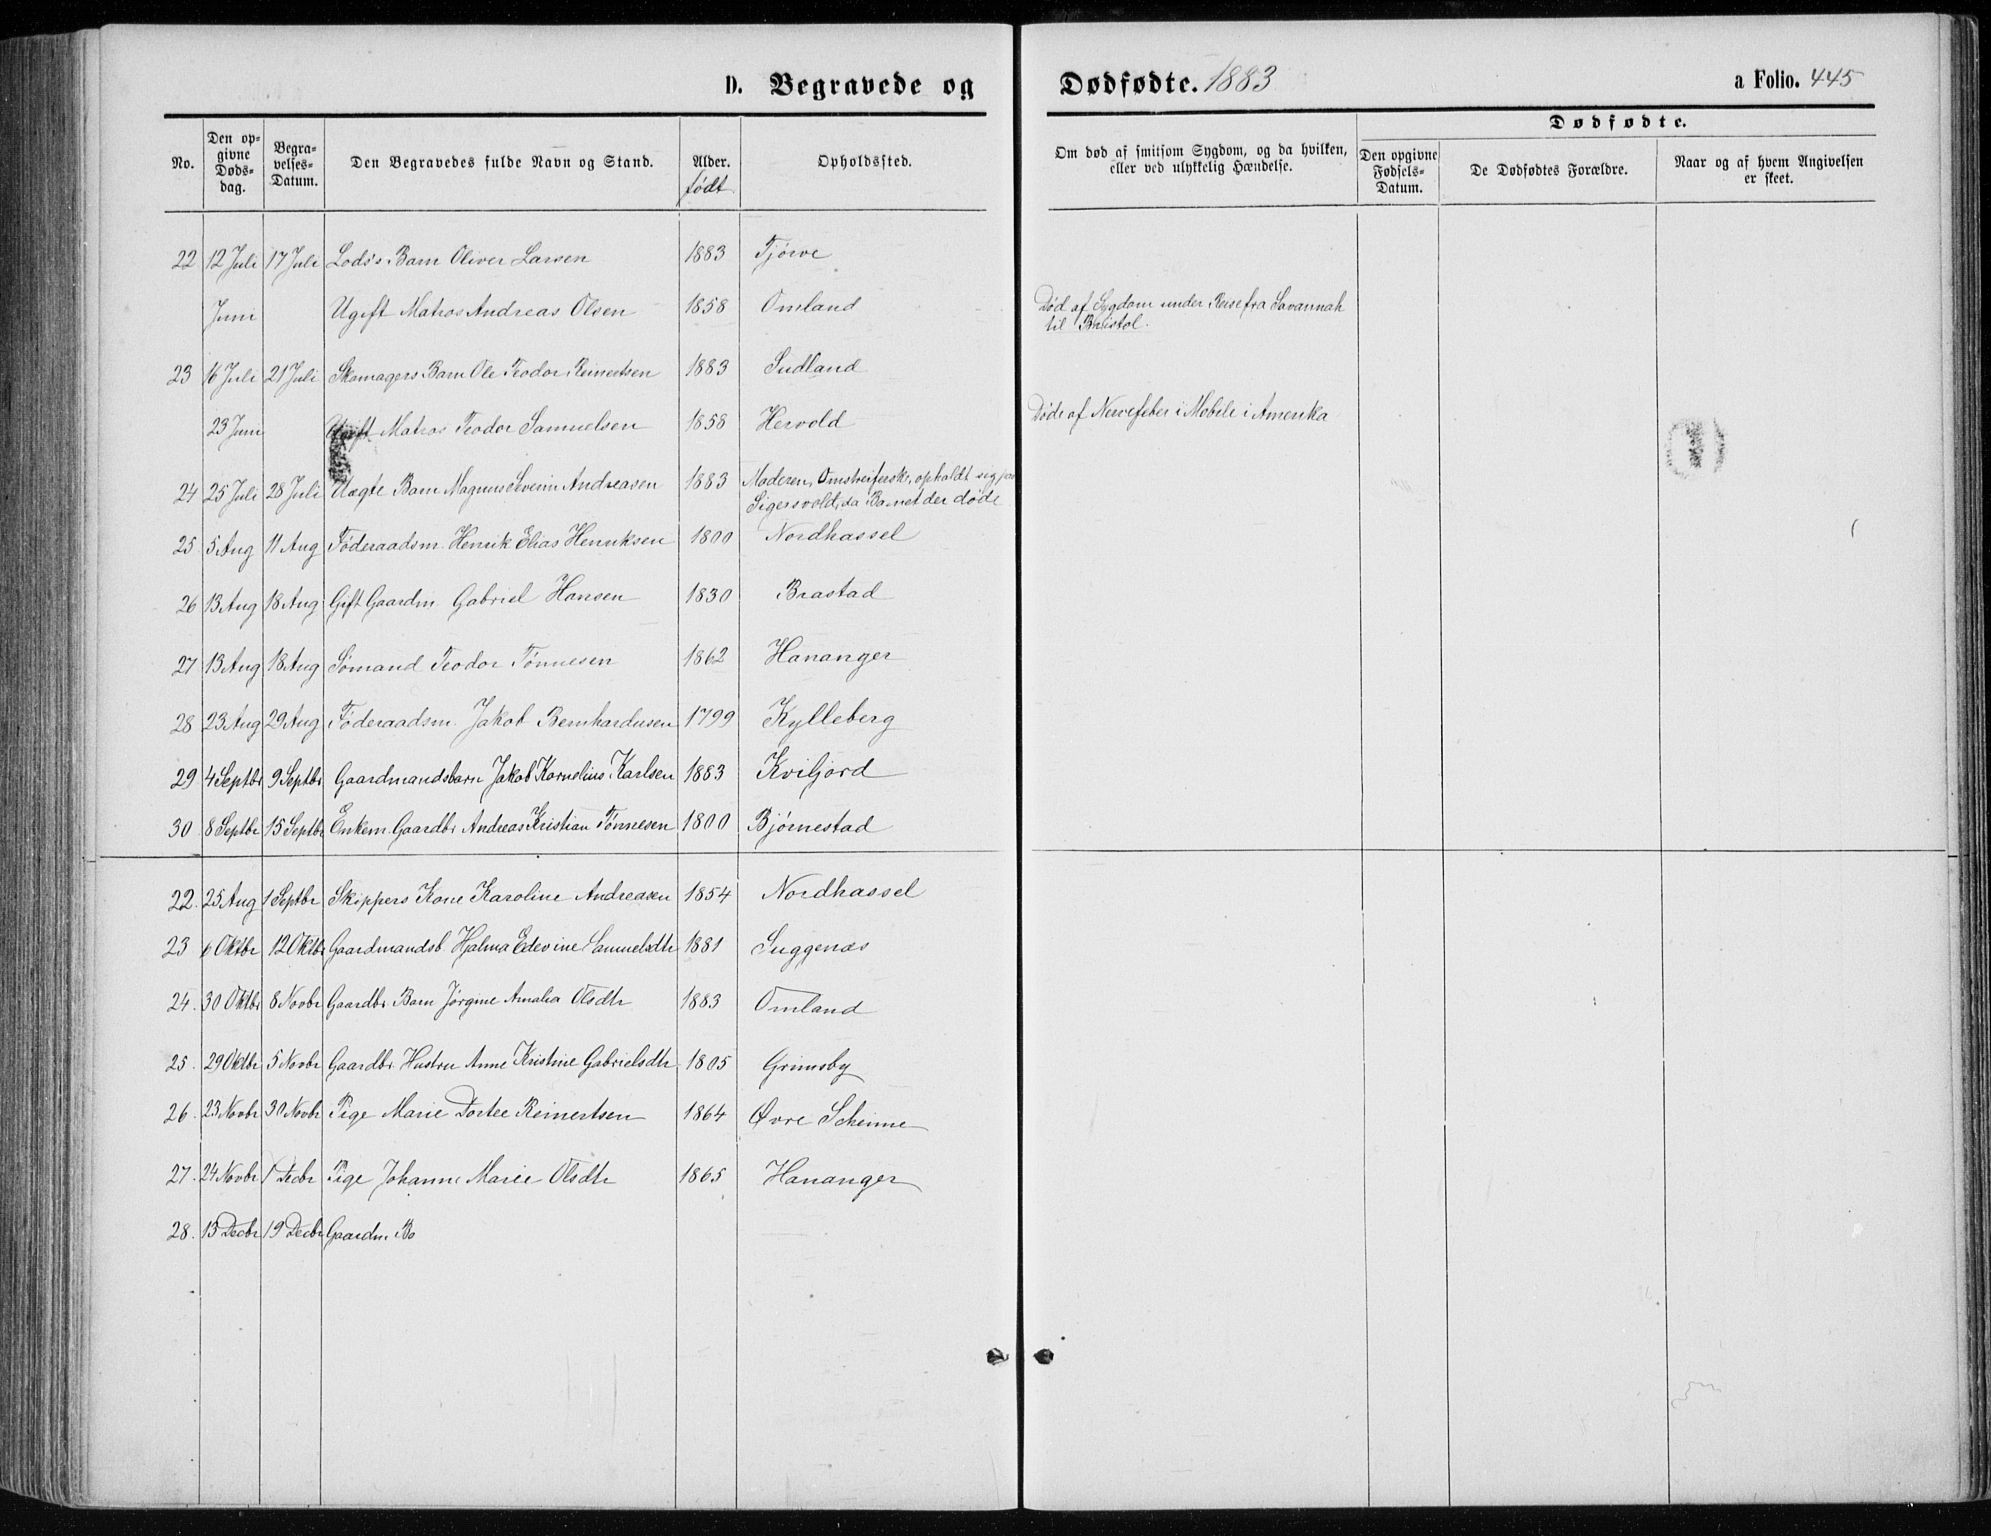 D. Begravede og Dødfødte. 1883 a Folio. 445
No. Den opgivne Dødsdag. Begravelses-Datum. Den Begravedes fulde Navn og Stand. Alder. født Opholdssted. Om død af smitsom Sygdom, og da hvilken, eller ved ulykkelig Hændelse. Dødfødte. Den opgivne Fødsels-Datum. De Dødfødtes Forældre. Naar og af hvem Angivelsen er skeet.
22 12 Juli 17 Juli Lods's Barn Oliver Larsen 1883 Tjørve
Juni Ugift Matros Andreas Olsen 1858 Omland Død af Sygdom under Reise fra Savannah
til Bristol.
23 16 Juli 21 Juli Skomagers Barn Ole Teodor Reinertsen 1883 Sudland
23 Juni Ugift Matros Teodor Samuelsen 1858 Hervold Døde af Nervefeber i Mobile i Amerika
24 25 Juli 28 Juli Uægte Barn Magnus Severin Andreasen 1883 Moderen, Omstreiferske, opholdt sig paa
Sigersvold, da Barnet der døde
25 5 Aug 11 Aug Föderaadsm. Henrik Elias Henriksen 1800 Nordhassel
26 13 Aug 18 Aug Gift Gaardm. Gabriel Hansen 1830 Brastad
27 13 Aug 18 Aug Sömand Teodor Tönnesen 1862 Hananger
28 23 Aug 29 Aug Föderaadsm. Jakob Bernhardusen 1799 Kylleberg
29 4 Septbr 9 Septbr Gaardmandsbarn Jakob Kornelius Karlsen 1883 Kviljord
30 8 Septbr 15 Septbr Enkem. Gaardbr. Andreas Kristian Tønnesen 1800 Bjørnestad
22. 25 Aug 1 Septbr Skippers Kone Karoline Andreasen 1854 Nordhassel
23 6 Oktbr 12 Oktbr Gaardmandsb. Hjalma Edevine Samuelsdtr 1881 Suggenæs
24. 30 Oktbr 8 Novbr Gaardbr. Barn Jörgine Amalia Olsdtr 1883 Omland
25. 29 Oktbr 5 Novbr Gaardbr. Hustru Anne Kristine Gabrielsdtr 1805 Grimsby
26. 23 Novbr 30 Novbr Pige Marie Dortee Reinertsen 1864 Øvre Skeime
27. 24 Novbr 1 Decbr Pige Johanne Marie Olsdtr 1865 Hananger
28. 13 Decbr 19 Decbr Gaardm. Ba